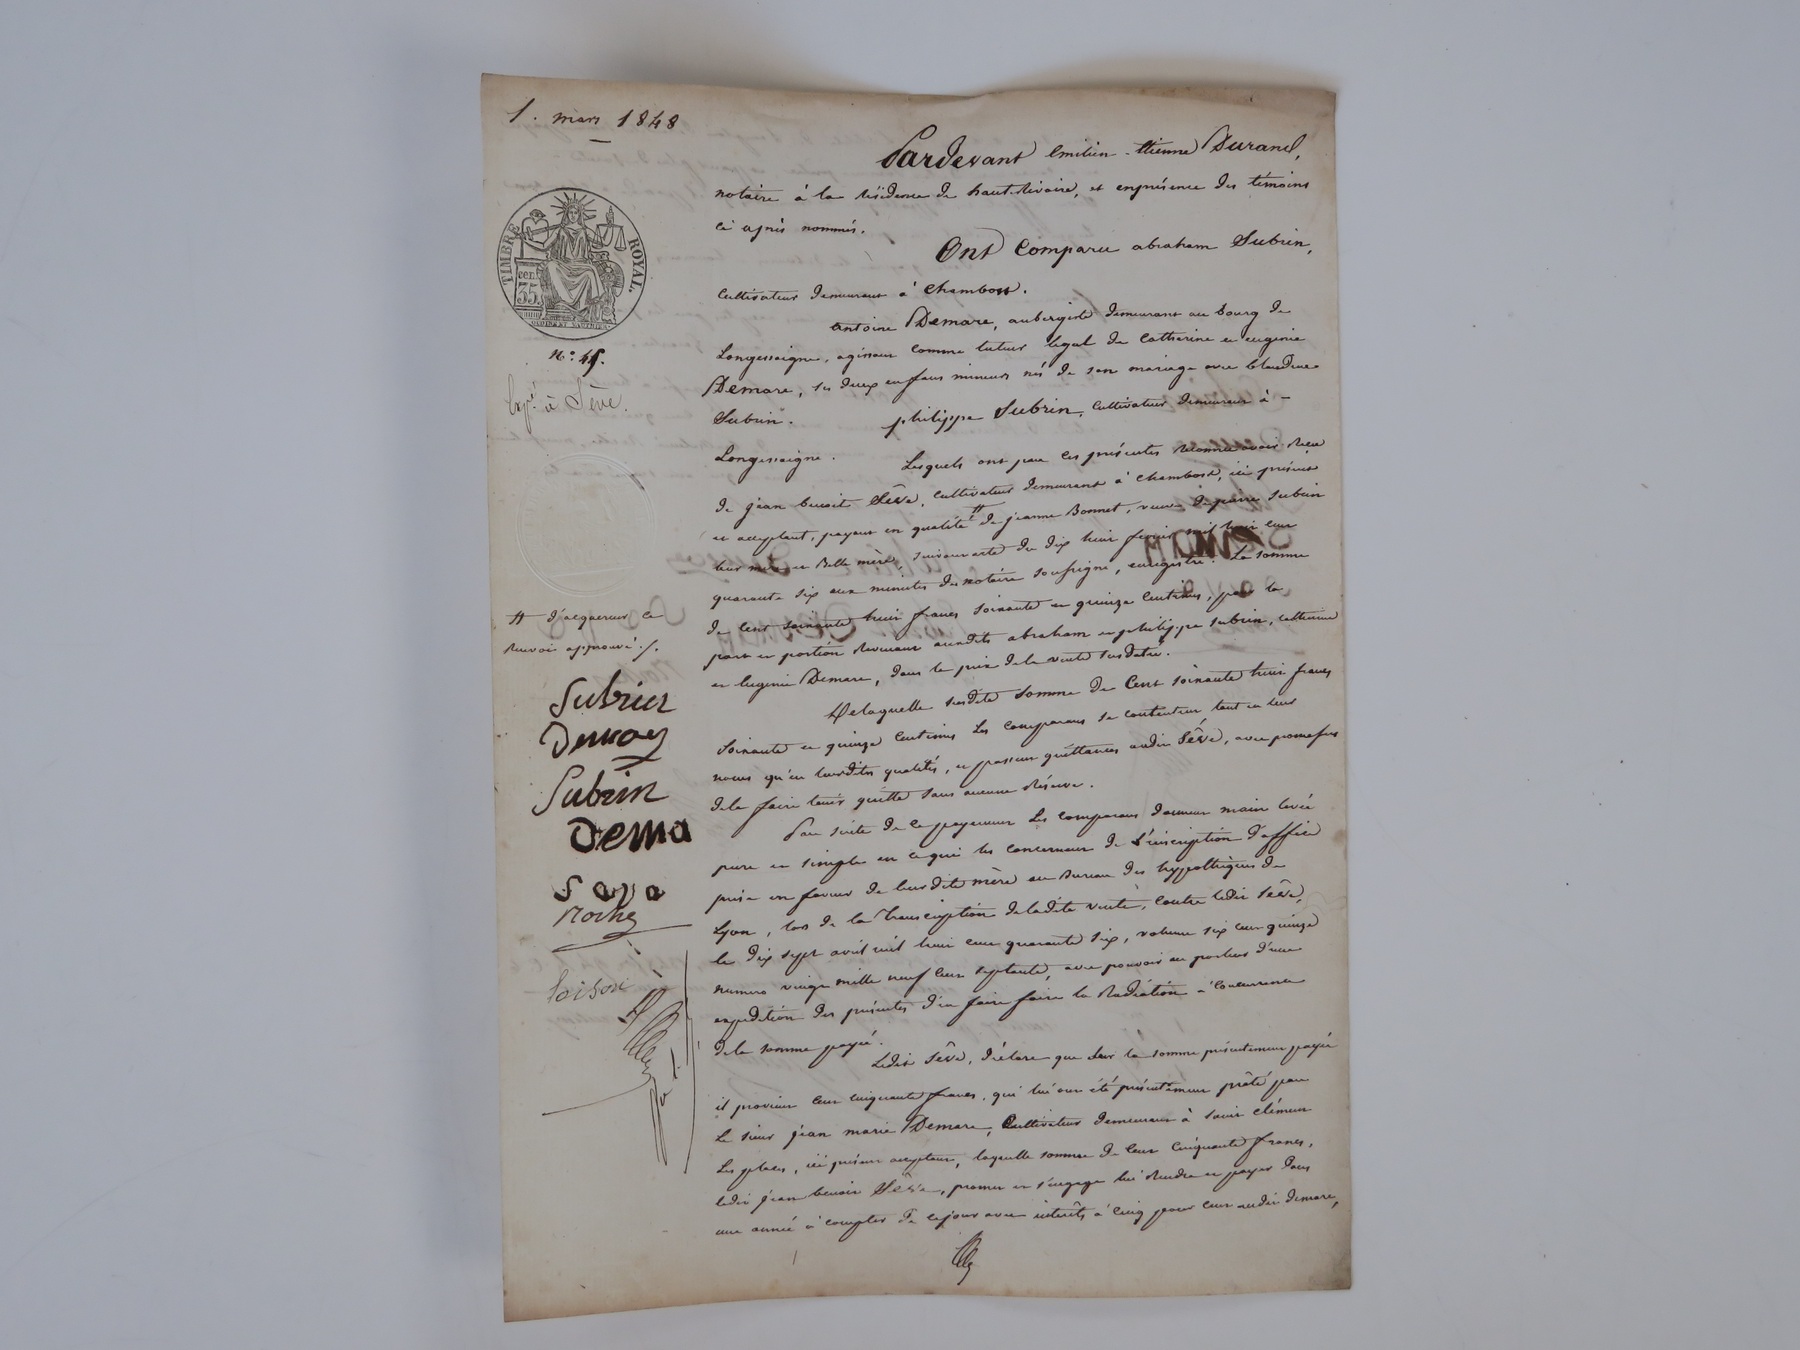 1. mars 1848
Pardevant emilien-etienne Durand,
notaire à la résidence de haut-rivoire, et enprésence des témoins
ci après nommés.
Ont comparu abraham Subrin,
cultivateur demeurant à chambost.
antoine Demare, aubergiste demeurant au bourg de
Longessaigne, agissant comme tuteur légal de Catherine et eugenie
Demare, ses deux enfans mineurs nés de son mariage avec
Subrin. philippe Subrin, cultivateur demeurant à -
Longessaigne.
Lesquels ont par ces présentes reconnu avoir reçu
de jean benoit Sêve, cultivateur demeurant à chambost, ici présent
et acceptant, payant en qualité # de jeanne Bonnet, veuve de pierre Subrin
leur mère et Belle mère, suivant acte du dix huit fevrier mil huit cent
quarante six aux minutes du notaire soussigné, enregistré. La somme
de cent soixante huit francs soixante et quinze centimes, pour la
part et portion revenant auxdits abraham et philippe subrin, catherine
et Eugenie Demare, dans le prix de la vente susdatée.
De laquelle susdite somme de Cent soixante huit francs
soixante et quinze centimes Les comparans se contentent tant en leurs
noms qu'en leursdites qualités, et passent quittances audit Sêve, avec promesses
de le faire tenir quitte sans aucune réserve.
Par suite de ce payement Les comparans donnent main levée
pure et simple en ce qui les concernent de l'inscription d'office
prise en faveur de leurdite mère au Bureau des hypothèques de
Lyon, lors de la Transcription de ladite vente, contre ledit Sêve,
le dix sept avril mil huit cent quarante six, volume six cent quinze
numero vingt mille neuf cent septante, avec pouvoir au porteur d'une
expédition des présentes d'en faire faire la Radiation à concurrence
de la somme payée.
Ledit Sêve, déclare que sur la somme présentement payée
il provient cent cinquante francs, qui lui ont été présentement prêté par
Le sieur jean marie Demare, Cultivateur demeurant à saint clément
Les places, ici présent acceptant, laquelle somme de cent Cinquante francs,
ledit jean benoit Sêve, promet et s'engage lui rendre et payer dans
une année à compter de ce jour avec intérêts à cinq pour cent audit demare,
TIMBRE ROYAL.
35 cent
N.° 45.
Exp.é à Sève.
# d'acquereur ce
renvoi approuvé ./.
Subrin
Subrin
Dema
Seve